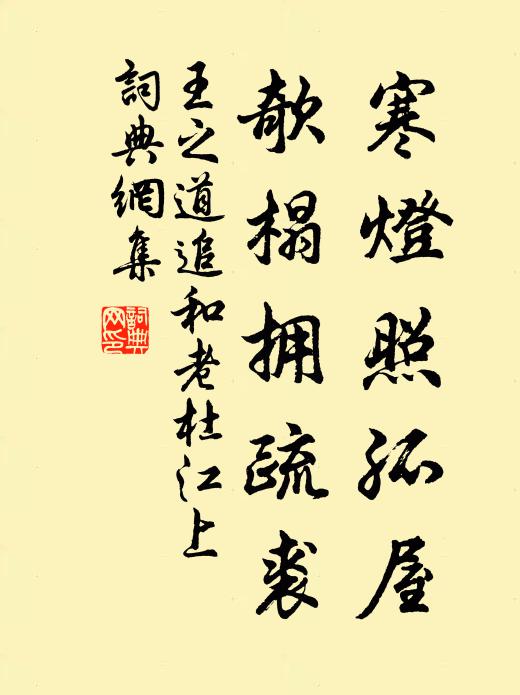 寒燈照孤屋
欹榻拥疏裘
王之道追和老杜江上
詞典網集
詞典网印